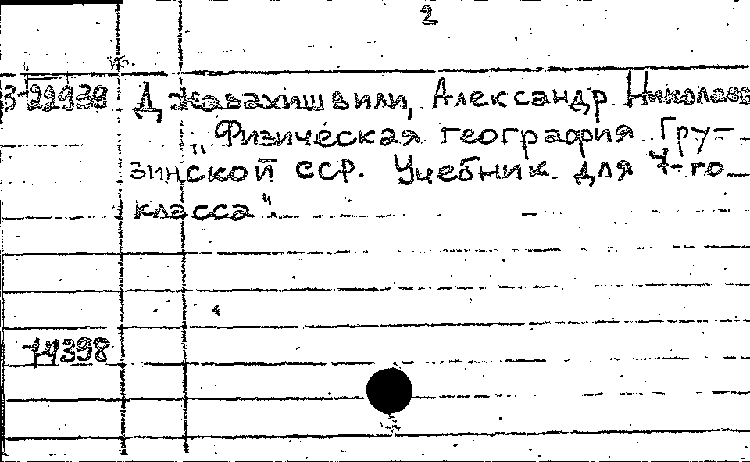 2
3-22938 Джавахишвили, Александр Николаев
„Физическая география Гру-
зинской ССР. Учебник для 7-го
класса".
74398